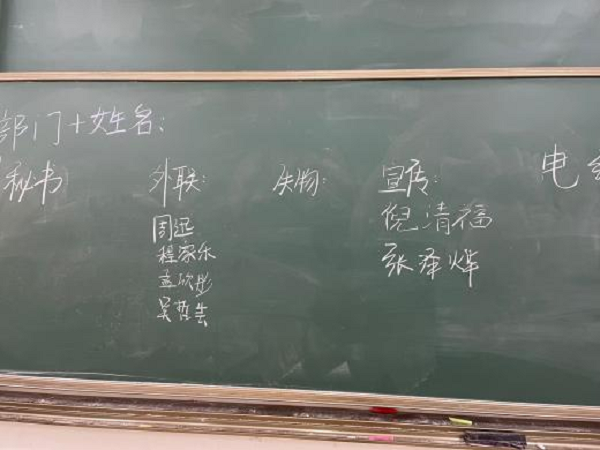 部门+姓名:
秘书 外联: 失物: 宣传: 电
周远 倪清福
程家乐 张泽烨
孟欣彤
吴哲